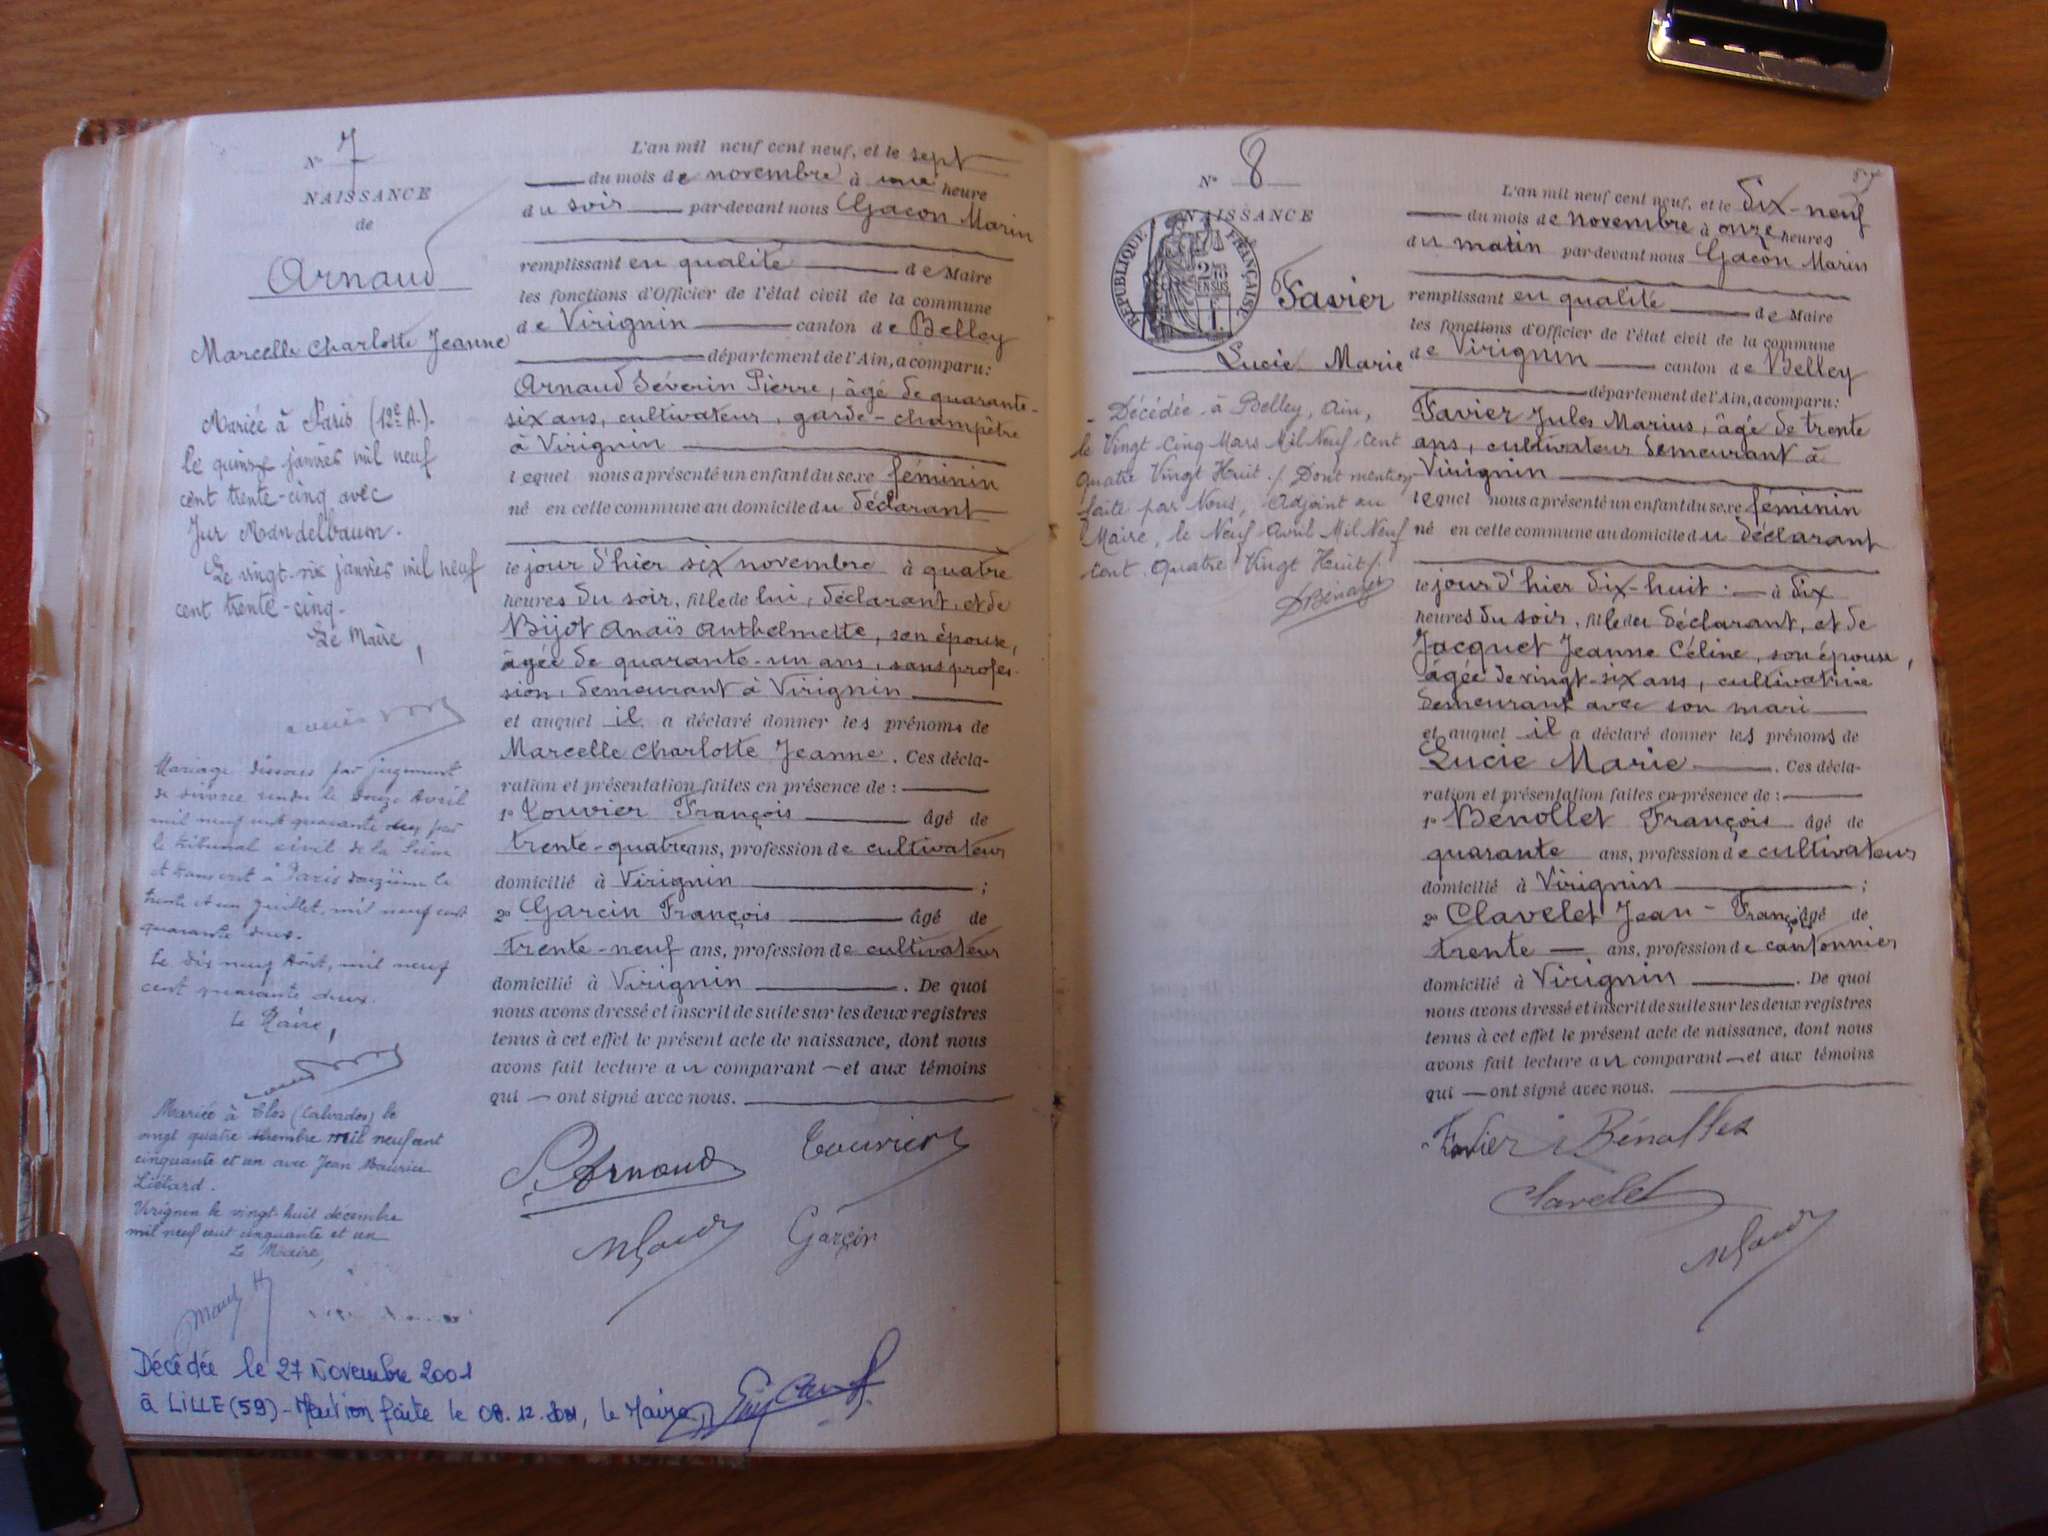 N° 7
NAISSANCE
de
Arnaud
Marcelle Charlotte Jeanne
Mariée à Paris (12e A.).
le quinze janvier mil neuf
cent trente-cinq avec
Jur Mandelbaum.
Le vingt-six janvier mil neuf
cent trente-cinq.
Le Maire,
Mariage dissous par jugement
de divorce rendu le douze Avril
mil neuf cent quarante deux par
le tribunal civil de la Seine
et transcrit à Paris douzième le
trente et un juillet, mil neuf cent
quarante deux.
Le dix neuf Août, mil neuf
cent quarante deux.
Le Maire,
Mariée à Glos (Calvados) le
vingt quatre mil neuf cent
cinquante et un avec Jean Maurice
Liétard.
Virignin le vingt-huit decembre
mil neuf cent cinquante et un
Le Maire,
Décédée le 27 Novembre 2001
à LILLE (59) - Mention faite le 08.12.2001, le Maire
L'an mil neuf cent neuf, et le sept
du mois de novembre à une heure
du soir par-devant nous Gacon Marin
remplissant en qualité de Maire
les fonctions d'Officier de l'état civil de la commune
de Virignin canton de Belley
département de l'Ain, a comparu:
Arnaud Séverin Pierre, âgé de quarante-
six ans, cultivateur, garde-champêtre
à Virignin
lequel nous a présenté un enfant du sexe féminin
né en cette commune au domicile du déclarant
le jour d'hier six novembre à quatre
heures du soir, fille de lui, déclarant, et de
Bijot Anaïs Anthelmette, son épouse,
âgée de quarante-un ans, sans profes-
sion, demeurant à Virignin
et auquel il a déclaré donner les prénoms de
Marcelle Charlotte Jeanne. Ces décla-
ration et présentation faites en présence de :
1° Touvier François âgé de
trente-quatre ans, profession de cultivateur
domicilié à Virignin ;
2° Garcin François âgé de
trente-neuf ans, profession de cultivateur
domicilié à Virignin. De quoi
nous avons dressé et inscrit de suite sur les deux registres
tenus à cet effet le présent acte de naissance, dont nous
avons fait lecture au comparant — et aux témoins
qui — ont signé avec nous.
S. Arnaud Touvier
MGacon Garçin
87
N° 8
NAISSANCE
RÉPUBLIQUE FRANÇAISE
Favier
Lucie Marie
- Décédée à Belley, Ain,
le Vingt Cinq Mars Mil Neuf Cent
Quatre Vingt Huit ./ Dont mention
faite par Nous, Adjoint au
Maire, le Neuf Avril Mil Neuf
Cent Quatre Vingt Huit /.
L'an mil neuf cent neuf, et le dix-neuf
du mois de novembre à onze heures
du matin par-devant nous Gacon Marin
remplissant en qualité de Maire
les fonctions d'Officier de l'état civil de la commune
de Virignin canton de Belley
département de l'Ain, a comparu:
Favier Jules Marius, âgé de trente
ans, cultivateur demeurant à
Virignin
lequel nous a présenté un enfant du sexe féminin
né en cette commune au domicile du déclarant
le jour d'hier dix-huit : — à dix
heures du soir, fille du déclarant, et de
Jacquet Jeanne Céline, son épouse,
âgée de vingt-six ans, cultivatrice
demeurant avec son mari
et auquel il a déclaré donner les prénoms de
Lucie Marie. Ces décla-
ration et présentation faites en présence de :
1° Benollet François âgé de
quarante ans, profession de cultivateur
domicilié à Virignin ;
2° Clavelet Jean-François âgé de
trente — ans, profession de cantonnier
domicilié à Virignin. De quoi
nous avons dressé et inscrit de suite sur les deux registres
tenus à cet effet le présent acte de naissance, dont nous
avons fait lecture au comparant — et aux témoins
qui — ont signé avec nous.
Favier Bénollet
Clavelet
MGacon